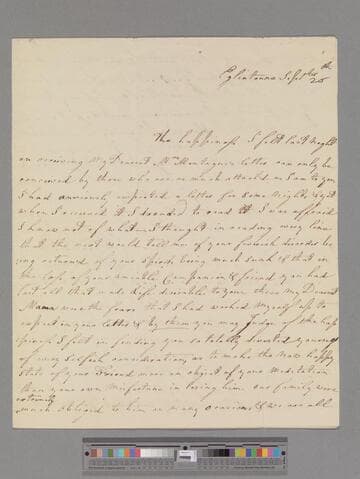 Eglintoune Septbr 20th
The happiness I felt last night
on receiving My Dearest Mrs Montagu's letter can only be
conceived by those who are as much attached as I am to you
I had anxiously expected a letter for some nights & yet
when I received it I dreaded to read it I was affraid
I knew not of what I thought in reading every line
that the next would tell me of your feverish disorder be
ing returned of your Spirits being much sunk & that in
the loss of your amiable Companion & friend you had
lost all that was desirable to you. these my Dearest
Mama were the fears that I had worked myself up to
expect in your letter & by them you may Judge of the hap
piness I felt in finding you so totally divested
of every Selfish consideration, as to make the now happy
state of your Friend more an object of your Meditation
than your own Misfortune in losing him. our family were
extremely
much obliged to him on many occasions & we are all